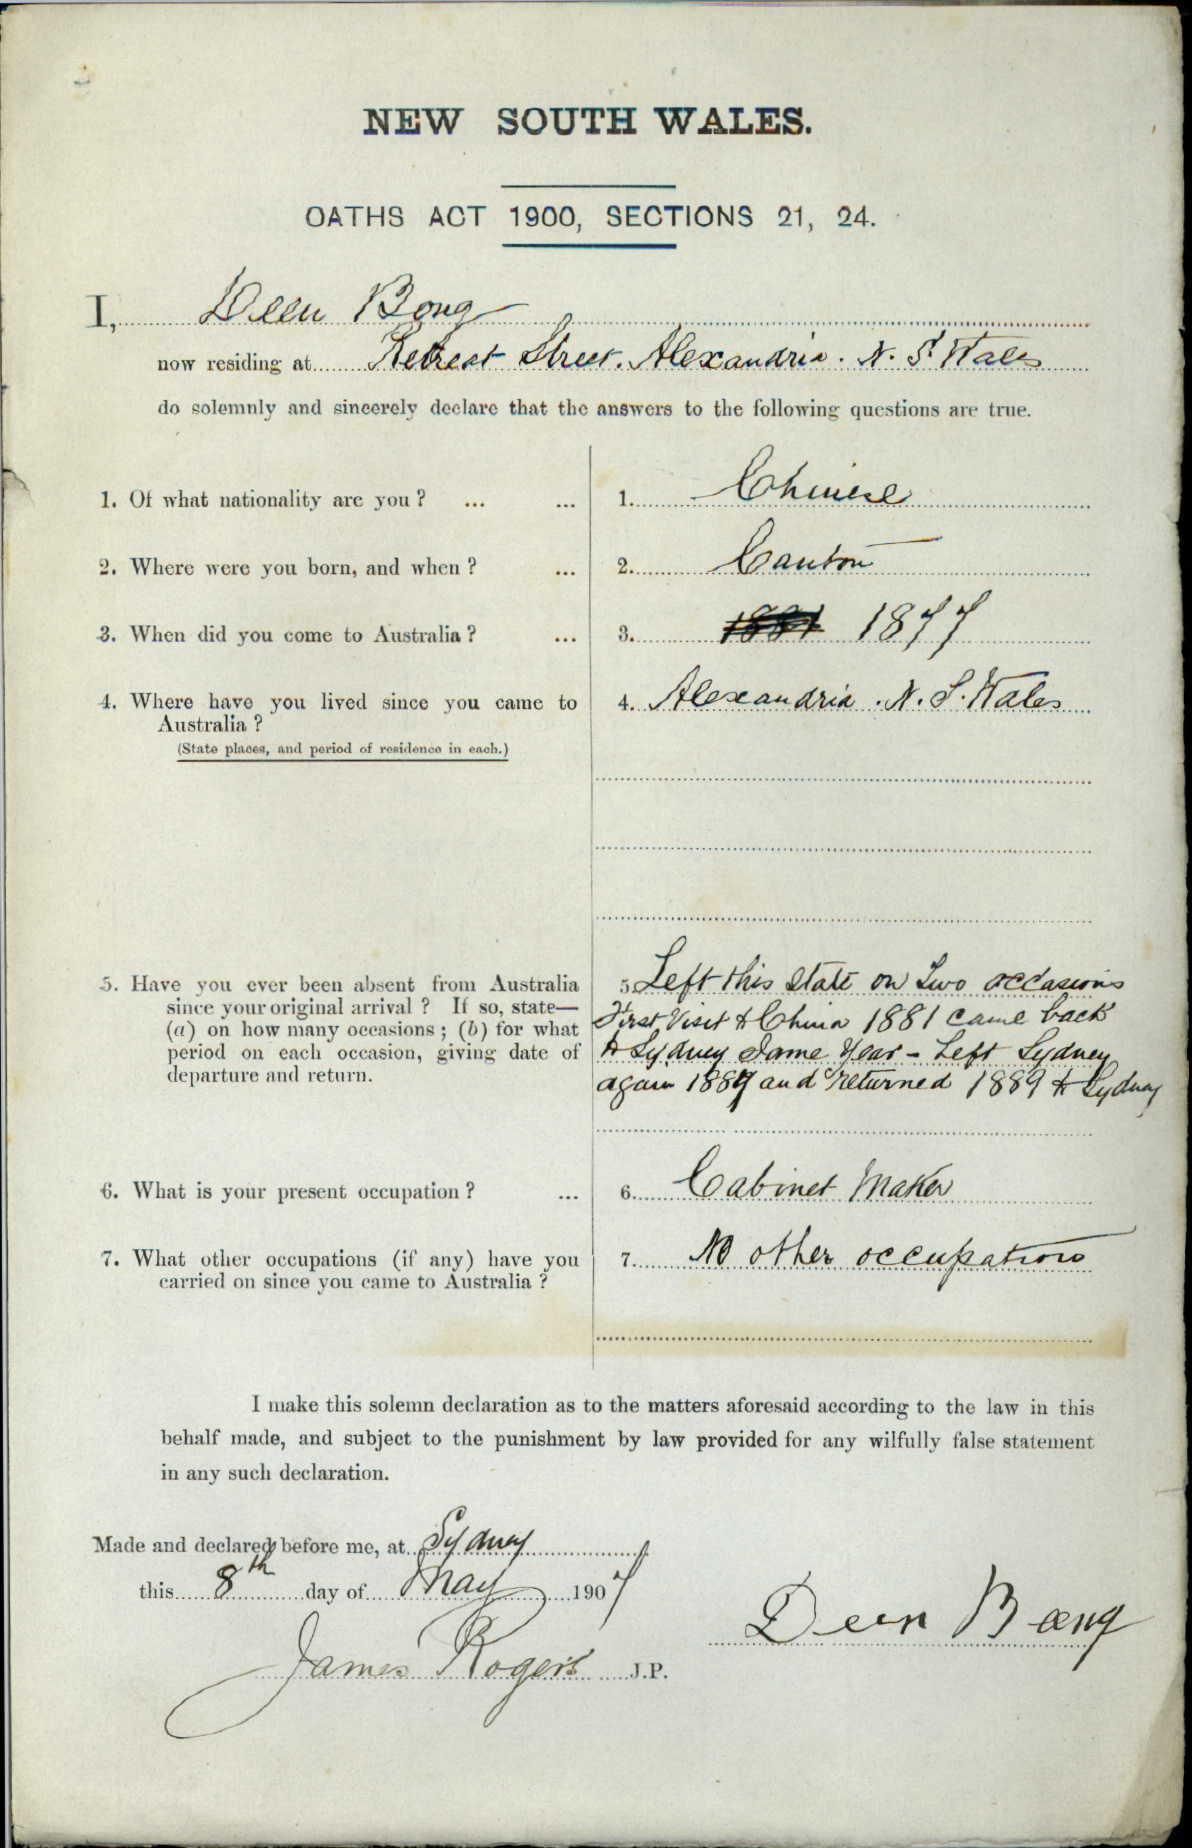 NEW SOUTH WALES.
OATHS ACT 1900, SECTIONS 21, 24.
I, Deen Bong
now residing at Retreat Street. Alexandria. N. S. Wales
do solemnly and sincerely declare that the answers to the following questions are true.
1. Of what nationality are you? ... ... 1. Chinese
2. Where were you born, and when? ... 2. Canton
3. When did you come to Australia? ... 3. 1881 1877
4. Where have you lived since you came to 4. Alexandria. N. S. Wales
Australia?
(State places, and period of residence in each.)
5. Have you ever been absent from Australia
since your original arrival? If so, state—
(a) on how many occasions; (b) for what
period on each occasion, giving date of
departure and return.
5. Left this State on Two occasions
First Visit to China 1881 came back
to Sydney Same Year - Left Sydney
again 1889 and returned 1889 to Sydney
6. What is your present occupation? ... 6. Cabinet Maker
7. What other occupations (if any) have you 7. No other occupations
carried on since you came to Australia?
I make this solemn declaration as to the matters aforesaid according to the law in this
behalf made, and subject to the punishment by law provided for any wilfully false statement
in any such declaration.
Made and declared before me, at Sydney
this 8th day of May 1907
Deen Bong
James Rogers J.P.